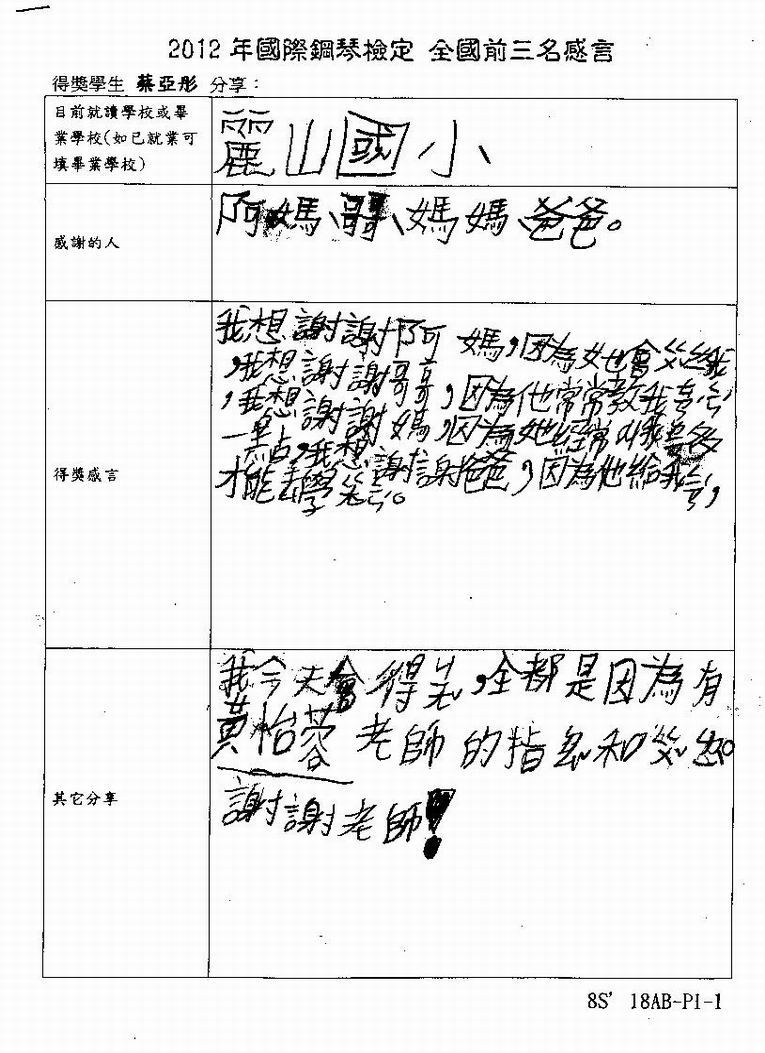 2012 年國際鋼琴檢定 全國前三名感言
得獎學生 蔡亞彤 分享：
目前就讀學校或畢
業學校(如已就業可
填畢業學校)
麗山國小
感謝的人
阿媽、哥哥、媽媽、爸爸。
得獎感言
我想謝謝阿媽，因為她會
，我想謝謝哥哥，因為他常常教我
一點，我想謝謝媽，因為她經常叫我
才能 學 我想謝謝爸爸，因為他給我
其它分享
我今天會得 ，全都是因為有
黃怡蓉老師的指 和
謝謝老師！
8S' 18AB-PI-1